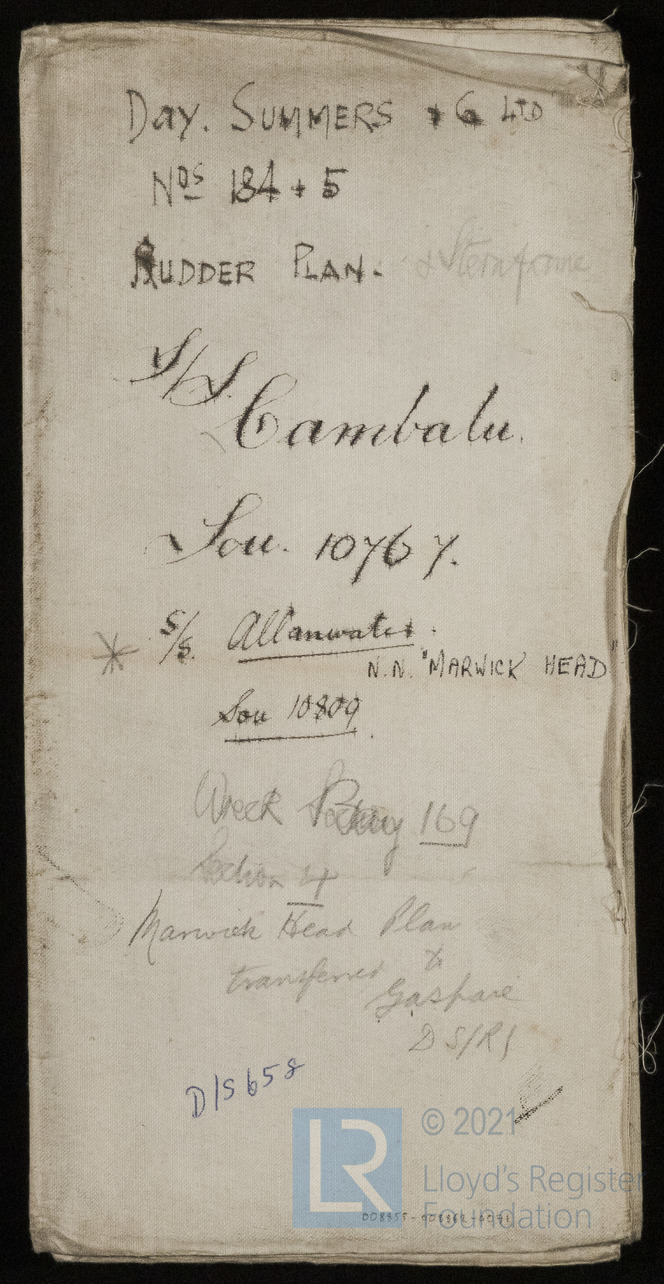 Day. Summers & Co Ltd
Nos 184 + 5
Rudder Plan. & Sternframe
S/S. Cambalu.
Sou. 10767.
* S/S. Allanwater.
N.N. "MARWICK HEAD"
Sou 10809.
Wreck 169
Section 4
Marwick Head Plan
transferred to
Gaspare
DS/RS
D/S 658
© 2021
LR
Lloyd's Register
Foundation